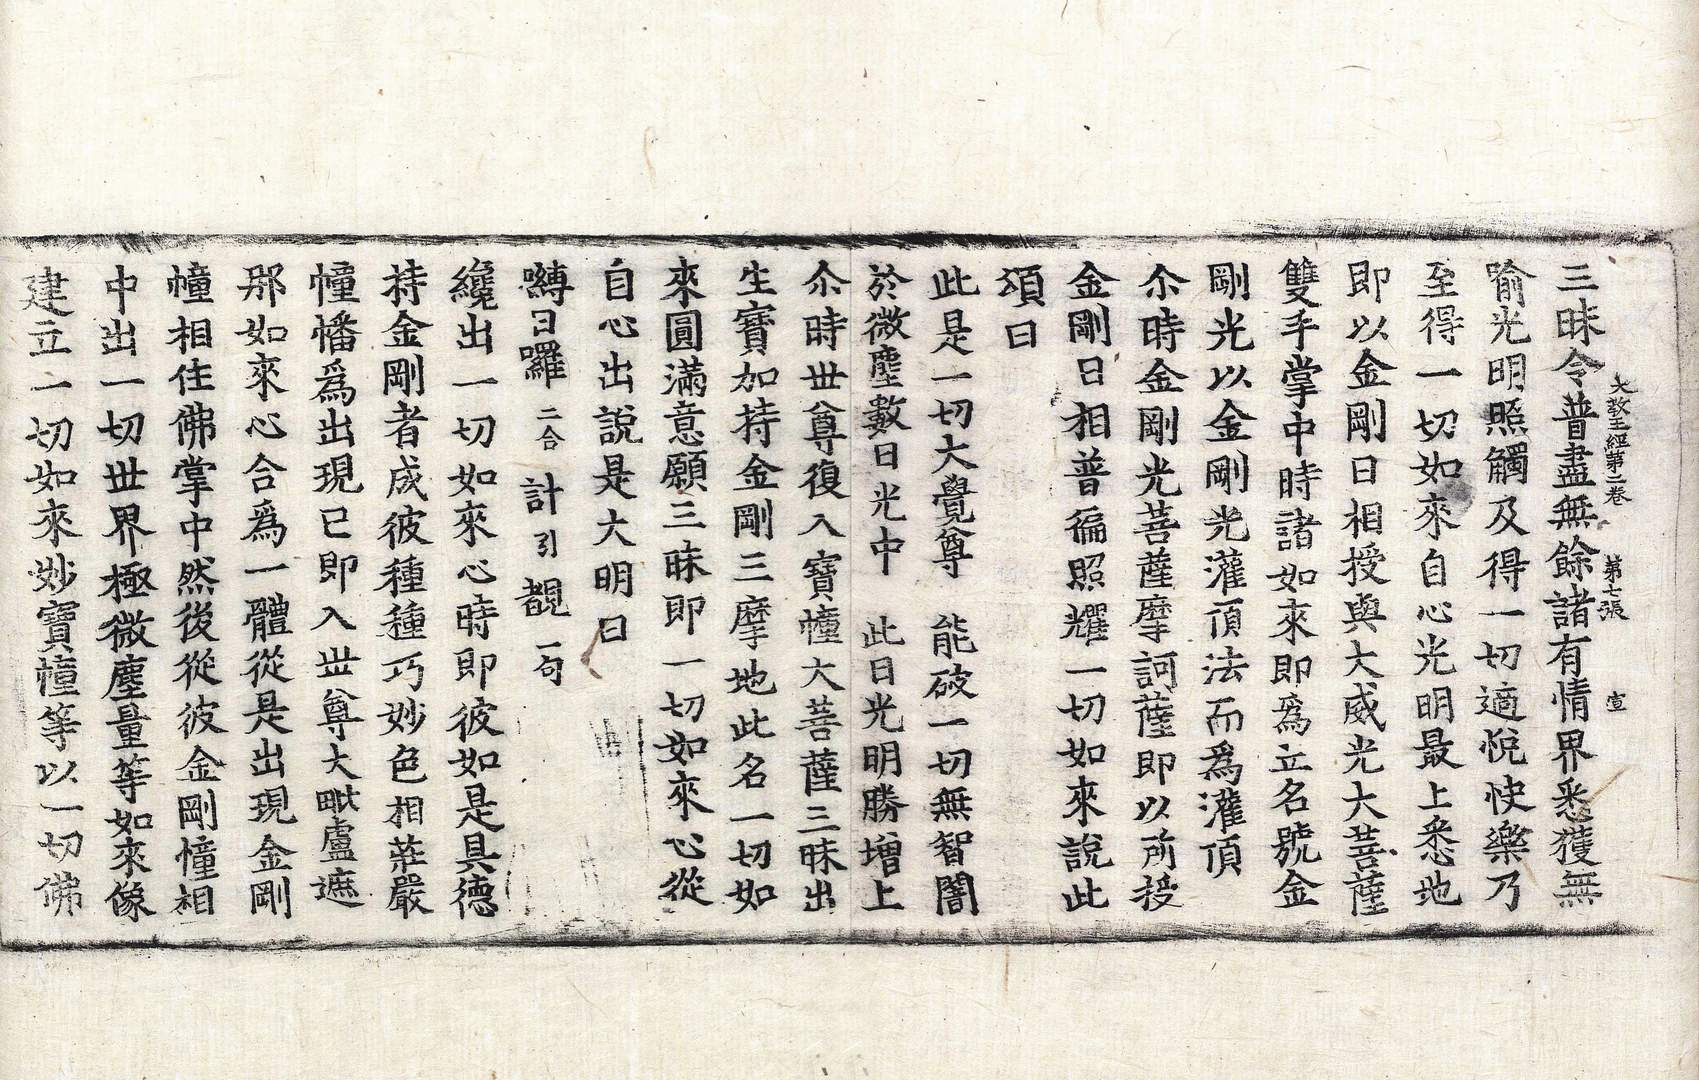 大教王經第二卷　第七張　宣
三昧令普盡無餘諸有情界悉獲無
喻光明照觸及得一切適悅快樂乃
至得一切如來自心光明最上悉地
即以金剛日相授與大威光大菩薩
雙手掌中時諸如來即爲立名號金
剛光以金剛光灌頂法而爲灌頂
尒時金剛光菩薩摩訶薩即以所授
金剛日相普徧照耀一切如來說此
頌曰
此是一切大覺尊　能破一切無智闇
於微塵數日光中　此日光明勝增上
尒時世尊復入寶幢大菩薩三昧出
生寶加持金剛三摩地此名一切如
來圓滿意願三昧即一切如來心從
自心出說是大明曰
嚩日囉二合計引覩一句
纔出一切如來心時即彼如是具德
持金剛者成彼種種巧妙色相莊嚴
幢幡爲出現已即入世尊大毗盧遮
那如來心合爲一體從是出現金剛
幢相住佛掌中然後從彼金剛幢相
中出一切世界極微塵量等如來像
建立一切如來妙寶幢等以一切佛